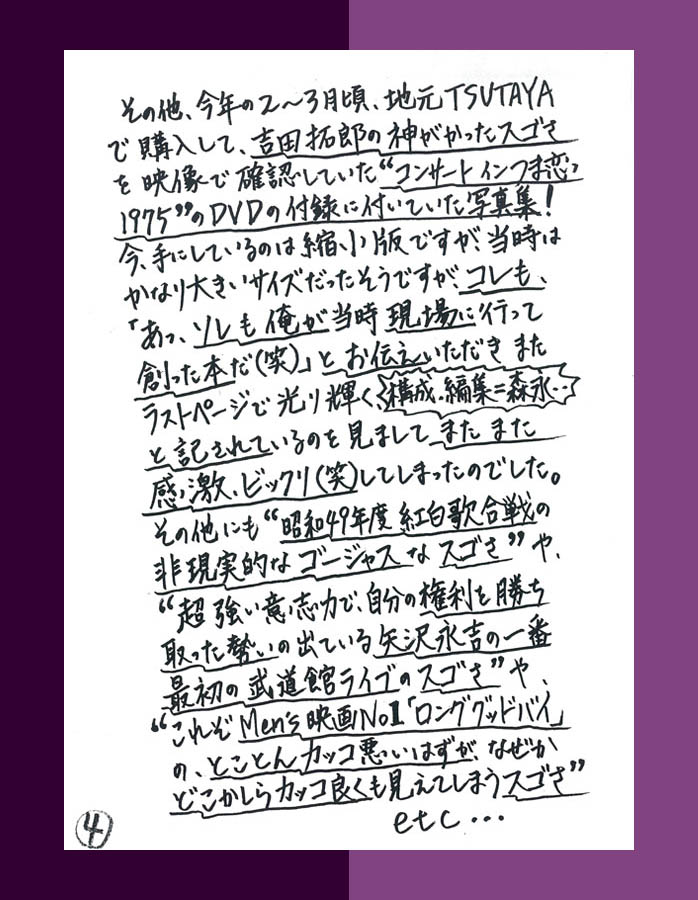 その他、今年の2〜3月頃、地元TSUTAYA
で購入して、吉田拓郎の神がかったスゴさ
を映像で確認していた“コンサートインつま恋
1975”のDVDの付録に付いていた写真集!
今、手にしているのは縮小版ですが、当時は
かなり大きいサイズだったそうですが、コレも、
「あっ、ソレも俺が当時現場に行って
創った本だ(笑)」とお伝えいただきまた
ラストページで光り輝く構成・編集=森永‥
と記されているのを見ましてまたまた
感激、ビックリ(笑)してしまったのでした。
その他にも“昭和49年度紅白歌合戦の
非現実的なゴージャスなスゴさ”や、
“超強い意志力で、自分の権利を勝ち
取った勢いの出ている矢沢永吉の一番
最初の武道館ライブのスゴさ”や、
“これぞMen's映画No1「ロンググッドバイ」
の、とことんカッコ悪いはずが、なぜか
どこかしらカッコ良くも見えてしまうスゴさ”
etc...
④